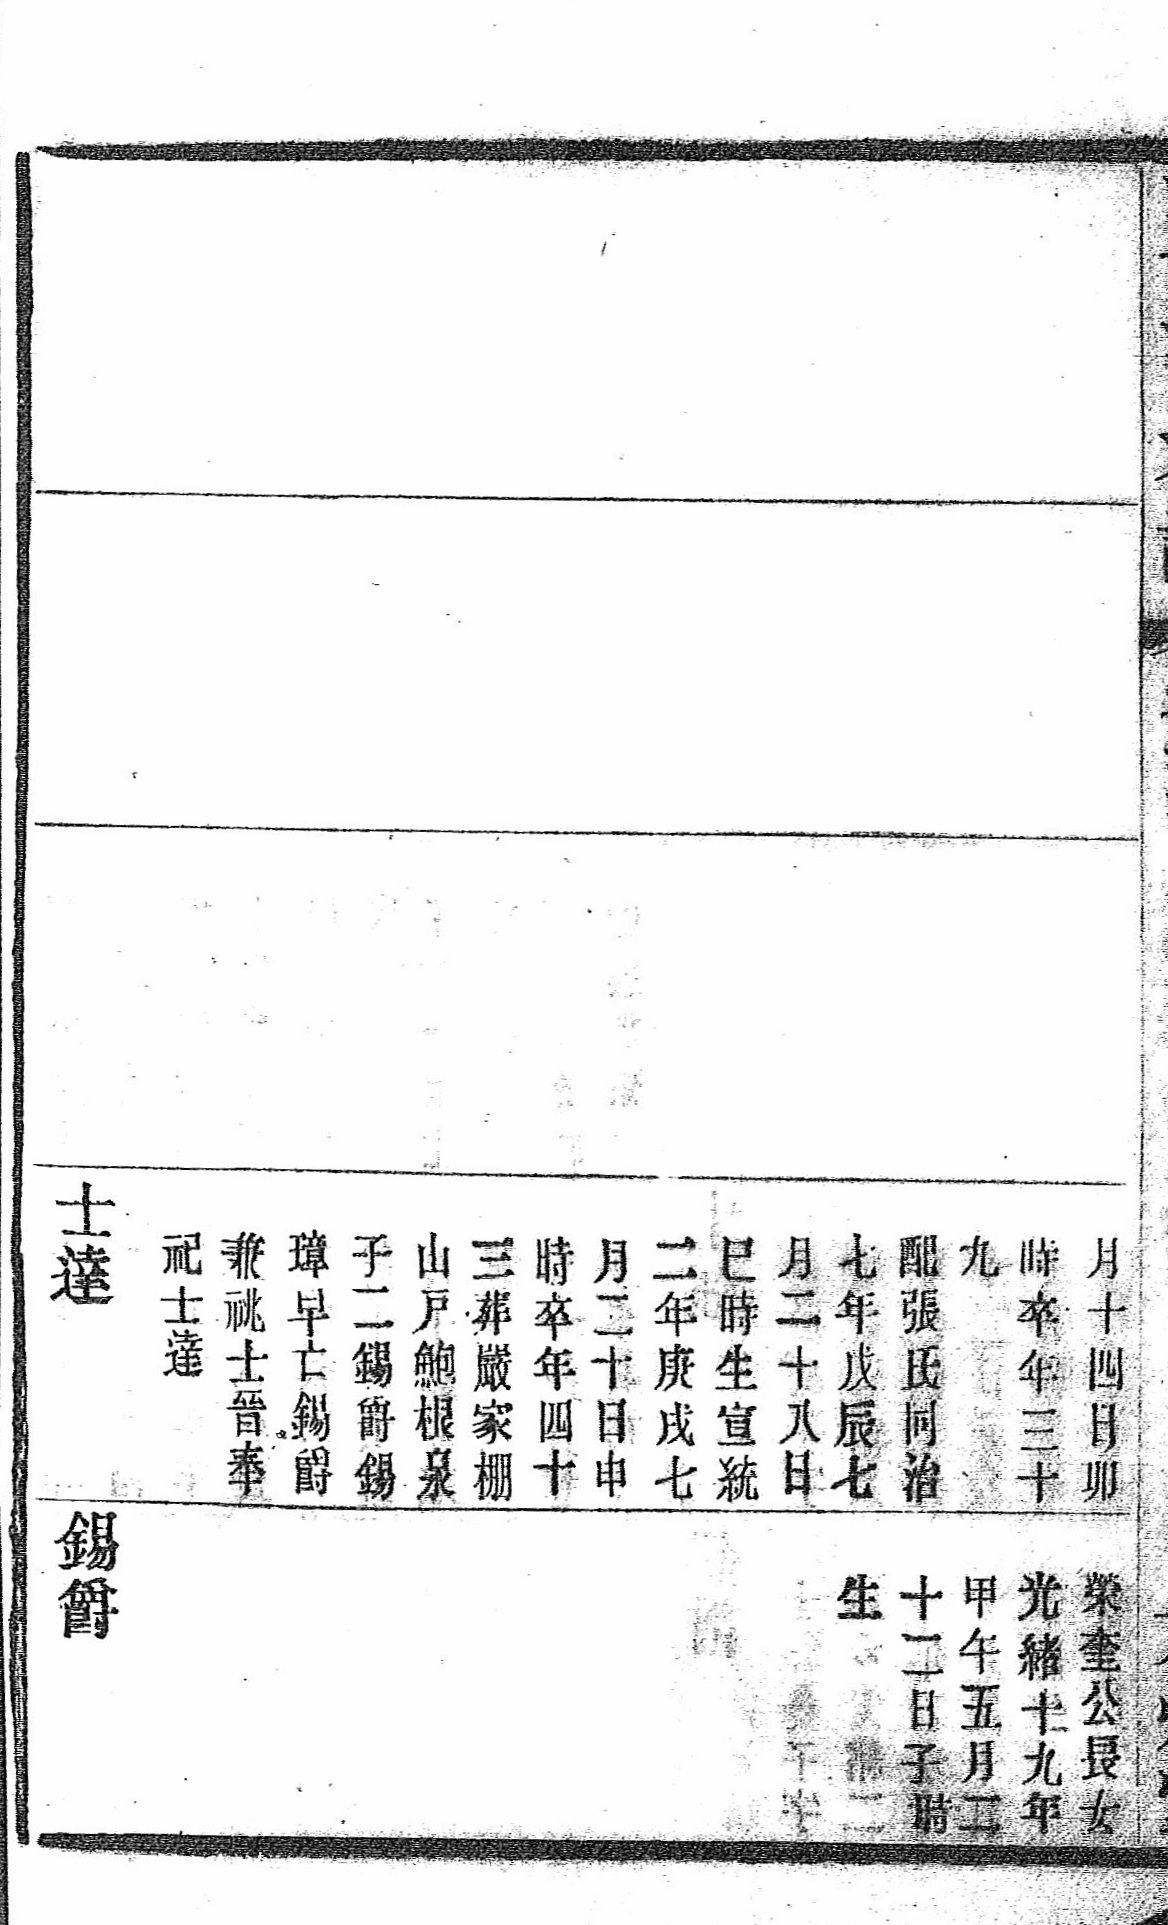 月十四日卯
時卒年三十
九
配張氏同治
七年戊辰七
月二十八日
巳時生宣統
二年庚戌七
月二十日申
時卒年四十
三葬嚴家棚
山戶鮑根泉
子二錫爵錫
璋早亡錫爵
兼祧士晉奉
祀士達
士達
榮奎公長女
光緒十九年
甲午五月二
十二日子時
生
錫爵